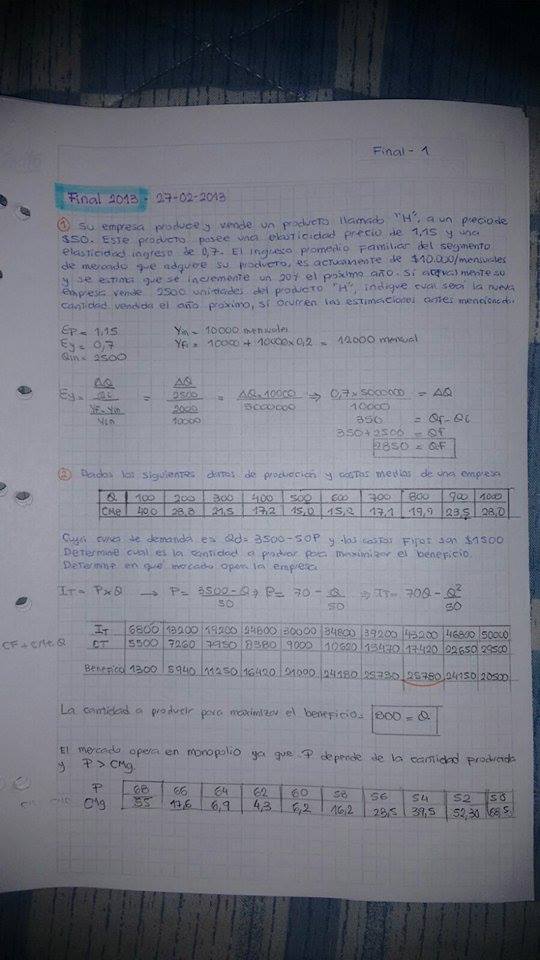 Final - 1
Final 2013 - 27-02-2013
① Su empresa produce y vende un producto llamado "H", a un precio de
$50. Este producto posee una elasticidad precio de 1,15 y una
elasticidad ingreso de 0,7. El ingreso promedio familiar del segmento
de mercado que adquiere su producto, es actualmente de $10.000/mensuales
y se estima que se incremente un 20% el próximo año. Si actualmente su
empresa vende 2500 unidades del producto "H", indique cual sería la nueva
cantidad vendida el año próximo, si ocurren las estimaciones antes mencionadas.
Ep = 1,15 Yin = 10000 mensuales
Ey = 0,7 Yfi = 10000 + 10000x0,2 = 12000 mensual
Qin = 2500
Ey = ΔQ/Qi / Yf-Yin/Yin = ΔQ/2500 / 2000/10000 = ΔQ.10000/5000000 ⇒ 0,7 x 5000000/10000 = ΔQ
350 = Qf - Qi
350 + 2500 = Qf
2850 = Qf
② Dados los siguientes datos de producción y costos medios de una empresa
Q 100 200 300 400 500 600 700 800 900 1000
CMe 40,0 28,8 21,5 17,2 15,0 15,2 17,1 19,9 23,5 28,0
Cuya curva de demanda es Qd = 3500 - 50P y los costos fijos son $1500
Determine cual es la cantidad a producir para maximizar el beneficio.
Determine en que mercado opera la empresa
IT = P x Q → P = 3500 - Q/50 ; P = 70 - Q/50 ⇒ IT = 70Q - Q²/50
IT 6800 13200 19200 24800 30000 34800 39200 43200 46800 50000
CF + CMe.Q CT 5500 7260 7950 8380 9000 10620 13470 17420 22650 29500
Beneficio 1300 5940 11250 16420 21000 24180 25730 25780 24150 20500
La cantidad a producir para maximizar el beneficio = 800 = Q
El mercado opera en monopolio ya que P depende de la cantidad producida
y P > CMg.
P 68 66 64 62 60 58 56 54 52 50
CMg 55 17,6 6,9 4,3 6,2 16,2 28,5 39,5 52,30 68,5